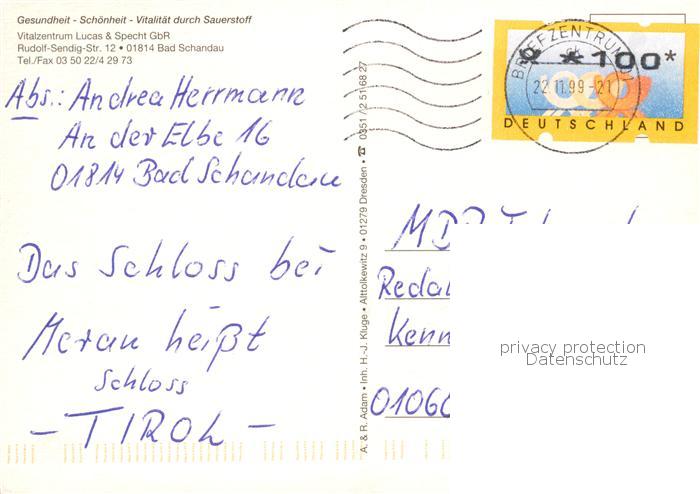 Gesundheit - Schönheit - Vitalität durch Sauerstoff
Vitalzentrum Lucas & Specht GbR
Rudolf-Sendig-Str. 12 • 01814 Bad Schandau
Tel./Fax 03 50 22/4 29 73
Abs.: Andrea Herrmann
An der Elbe 16
01814 Bad Schandau
Das Schloss bei
Meran heißt
Schloss
- TIROL -
A. & R. Adam • Inh. H.-J. Kluge • Alttolkewitz 9 • 01279 Dresden • ☎ 0351 / 2 51 68 27
BRIEFZENTRUM 01
22.11.99-21
*100*
DEUTSCHLAND
MDR
Redak
Kenn
01060
privacy protection
Datenschutz